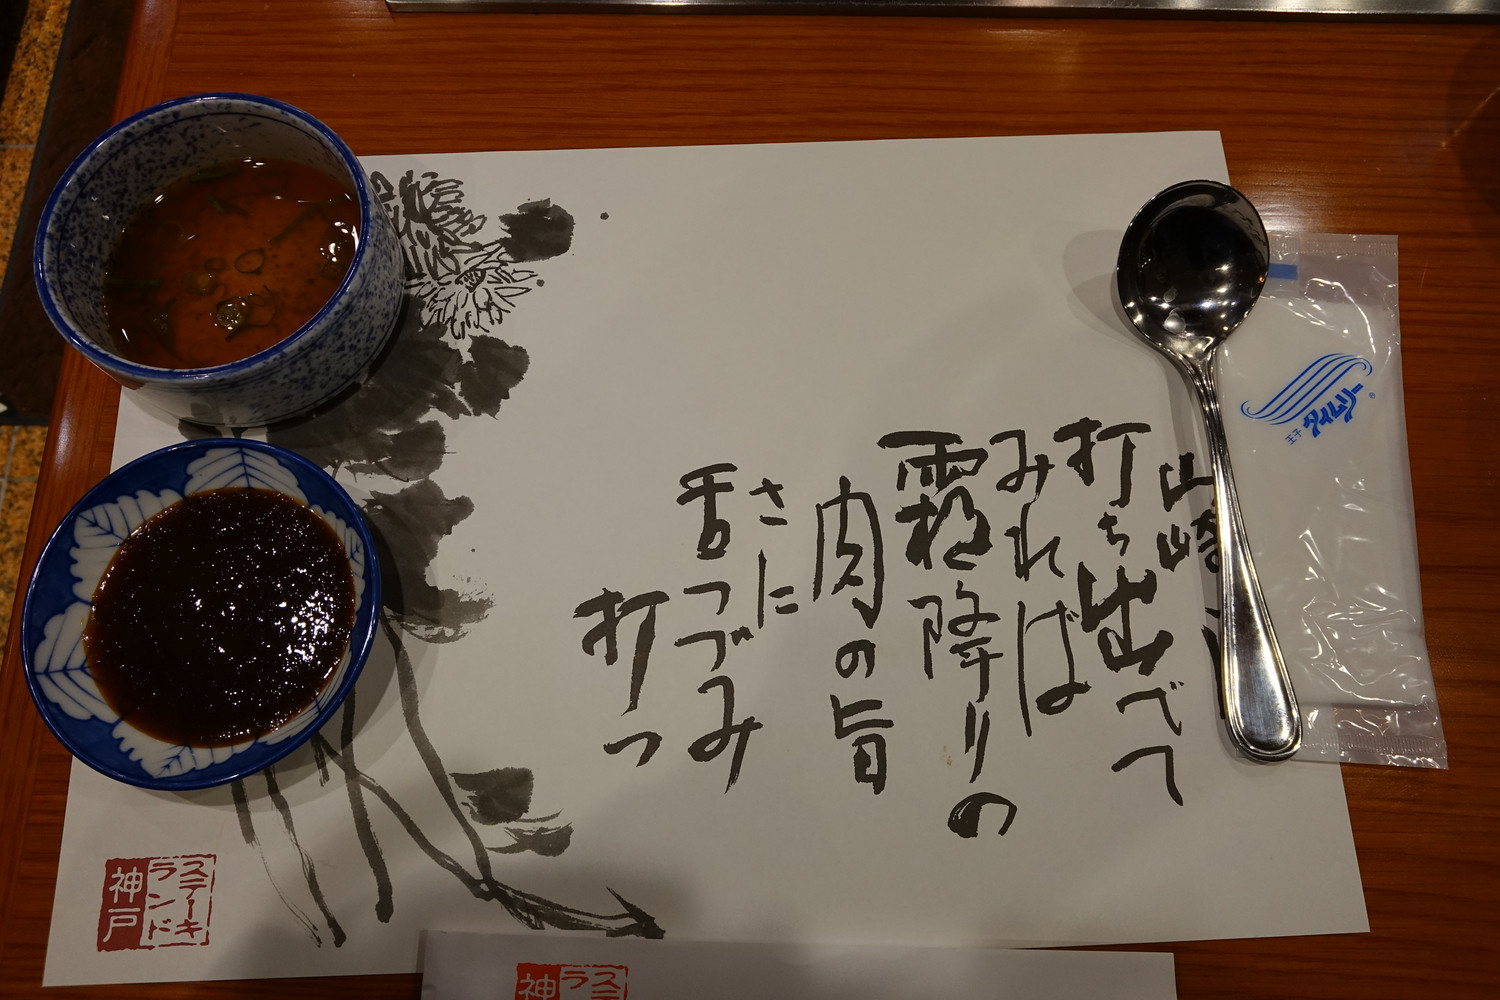 山崎
打ち出べて
みれば
霜降りの
肉の旨
さに
舌つづみ
打つ
王子
タイムリー
®
ステーキ
ランド
神戸
ステ
ラ
神